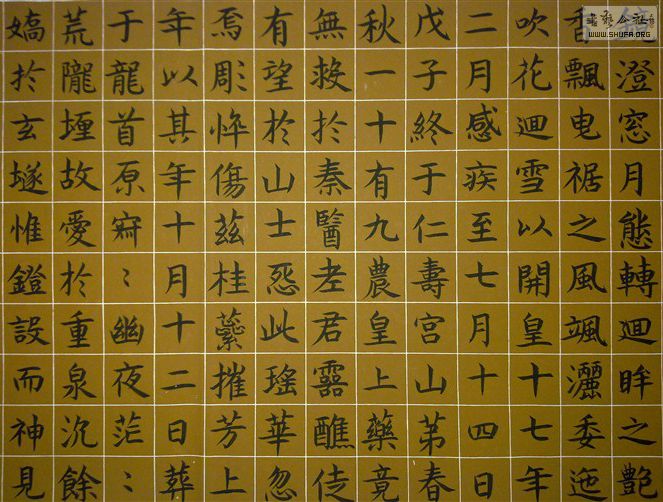 澄窓月態轉迴眸之艷
香飄曳裾之風颯灑委迤
吹花迴雪以開皇十七年
二月感疾至七月十四日
戊子終于仁壽宮山第春
秋一十有九農皇上藥竟
無救於秦醫老君靈醮徒
有望於山士怨此瑤華忽
焉彫悴傷茲桂蘂摧芳上
年以其年十月十二日葬
于龍首原寂〻幽夜茫〻
荒隴堙故愛於重泉沉餘
嬌於玄隧惟鐙設而神見
書藝公社
WWW.SHUFA.ORG